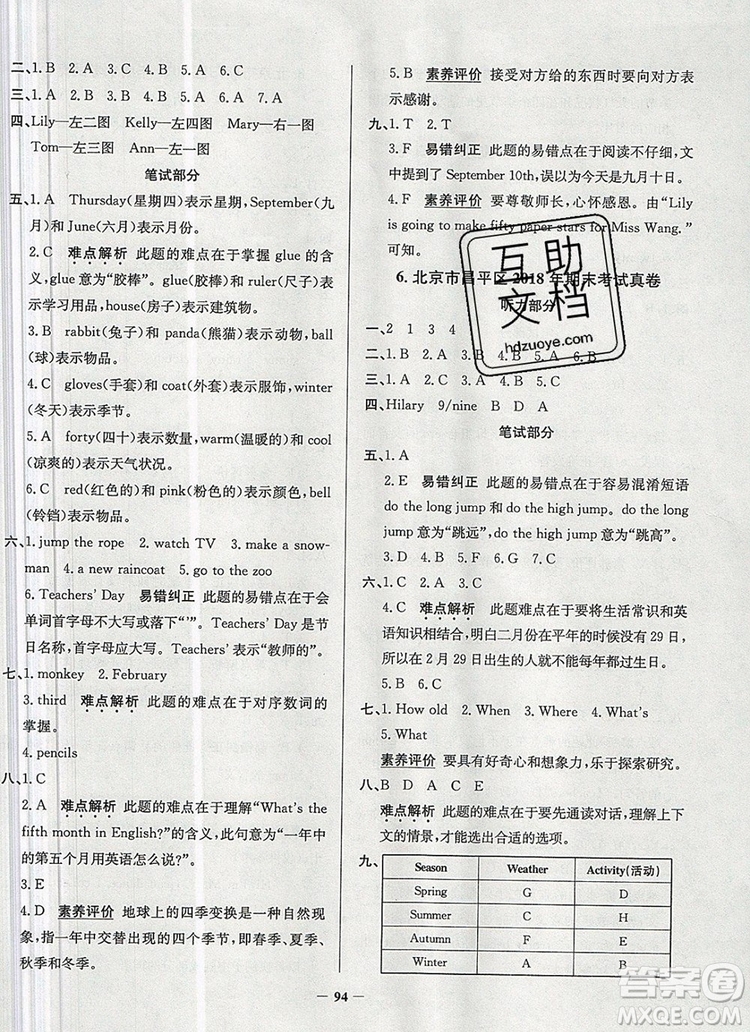 二、1. B 2. A 3. C 4. B 5. A 6. B
三、1. B 2. A 3. B 4. B 5. A 6. A 7. A
四、Lily—左二图 Kelly—左四图 Mary—右一图
Tom—左三图 Ann—左一图
笔试部分
五、1. A Thursday(星期四)表示星期, September(九
月)和 June(六月)表示月份。
2. C 难点解析 此题的难点在于掌握 glue 的含
义, glue 意为“胶棒”。glue(胶棒)和 ruler(尺子)表
示学习用品, house(房子)表示建筑物。
3. B rabbit(兔子)和 panda(熊猫)表示动物, ball
(球)表示物品。
4. C gloves(手套)和 coat(外套)表示服饰, winter
(冬天)表示季节。
5. A forty(四十)表示数量, warm(温暖的)和 cool
(凉爽的)表示天气状况。
6. C red(红色的)和 pink(粉色的)表示颜色, bell
(铃铛)表示物品。
六、1. jump the rope 2. watch TV 3. make a snow-
man 4. a new raincoat 5. go to the zoo
6. Teachers' Day 易错纠正 此题的易错点在于会
单词首字母不大写或落下“'”。Teachers' Day 是
节日名称, 首字母应大写。Teachers' 表示“教师的”。
七、1. monkey 2. February
3. third 难点解析 此题的难点在于对序数词的
掌握。
4. pencils
八、1. C
2. A 难点解析 此题的难点在于理解“What's the
fifth month in English?”的含义, 此句意为“一年中
的第五个月用英语怎么说?”。
3. E
4. D 素养评价 地球上的四季变换是一种自然现
象, 指一年中交替出现的四个季节, 即春季、夏季、
秋季和冬季。
5. B 素养评价 接受对方给的东西时要向对方表
示感谢。
九、1. T 2. T
3. F 易错纠正 此题的易错点在于阅读不仔细, 文
中提到了 September 10th, 误以为今天是九月十日。
4. F 素养评价 要尊敬师长, 心怀感恩。由“Lily
is going to make fifty paper stars for Miss Wang.”
可知。
6. 北京市昌平区 2018 年期末考试真卷
听力部分
一、2 1 3 4
二、1. B 2. B 3. C 4. A 5. A 6. B
三、1. A 2. C 3. B
四、Hilary 9/nine B D A
笔试部分
五、1. A
2. E 易错纠正 此题的易错点在于容易混淆短语
do the long jump 和 do the high jump。do the long
jump 意为“跳远”, do the high jump 意为“跳高”。
3. D 4. F 5. C 6. B
六、1. C 2. A 3. A
4. C 难点解析 此题的难点在于要将生活常识和英
语知识相结合, 明白二月份在平年的时候没有 29 日,
所以在 2 月 29 日出生的人就不能每年都过生日。
5. B 6. B
七、1. How old 2. When 3. Where 4. What's
5. What
素养评价 要具有好奇心和想象力, 乐于探索研究。
八、B D A C E
难点解析 此题的难点在于要先通读对话, 理解上下
文的情景, 才能选出合适的选项。
九、
Season Weather Activity(活动)
Spring G D
Summer C H
Autumn F E
Winter A B
互助
文档
hdzuoye.com
— 94 —
答案圈
MXQE.COM